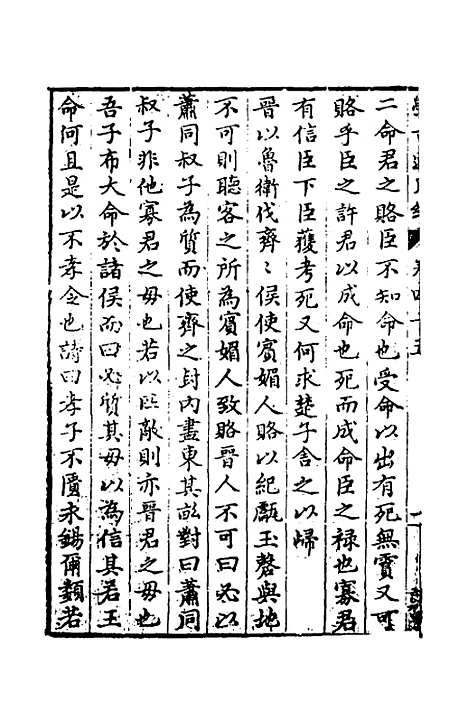 二命君之賂臣不知命也受命以出有死無霣又可
賂乎臣之許君以成命也死而成命臣之禄也寡君
有信臣下臣獲考死又何求楚子舍之以歸
晉以魯衛伐齊〻侯使賓媚人賂以紀甗玉磬與地
不可則聽客之所為賓媚人致賂晉人不可曰必以
蕭同叔子為質而使齊之封内盡東其畝對曰蕭同
叔子非他寡君之母也若以匹敵則亦晉君之母也
吾子布大命於諸侯而曰必質其母以為信其若王
命何且是以不孝令也詩曰孝子不匱永錫爾類若